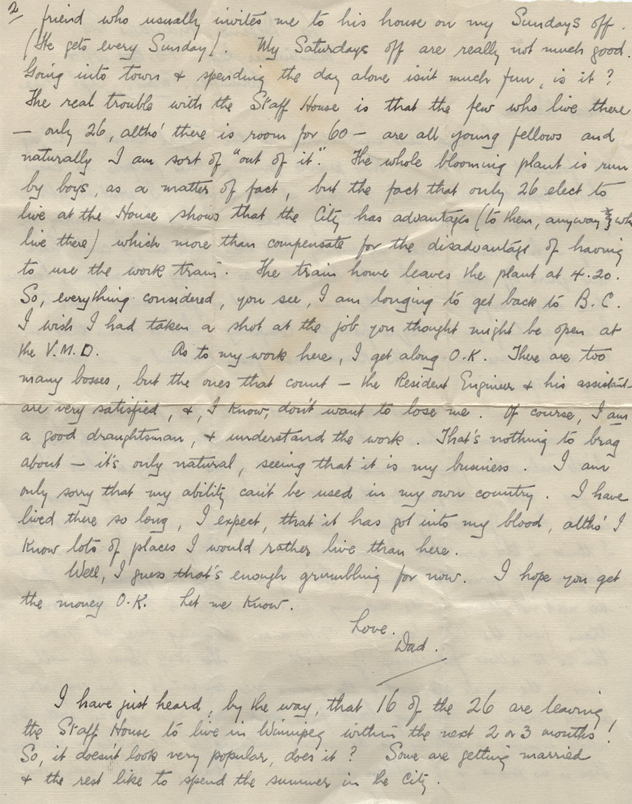 2
friend who usually invites me to his house on my Sundays off.
(He gets every Sunday). My Saturdays off are really not much good.
Going into town & spending the day alone isn't much fun, is it?
The real trouble with the Staff House is that the few who live there
— only 26, altho' there is room for 60 — are all young fellows and
naturally I am sort of "out of it". The whole blooming plant is run
by boys, as a matter of fact, but the fact that only 26 elect to
live at the House shows that the City has advantages (to them, anyway, who
live there) which more than compensate for the disadvantage of having
to use the work train. The train home leaves the plant at 4.20.
So, everything considered, you see, I am longing to get back to B.C.
I wish I had taken a shot at the job you thought might be open at
the V.M.D. As to my work here, I get along O.K. There are too
many bosses, but the ones that count — the Resident Engineer & his assistant
are very satisfied, &, I know, don't want to lose me. Of course, I am
a good draughtsman, & understand the work. That's nothing to brag
about — it's only natural, seeing that it is my business. I am
only sorry that my ability can't be used in my own country. I have
lived there so long, I expect, that it has got into my blood, altho' I
know lots of places I would rather live than here.
Well, I guess that's enough grumbling for now. I hope you get
the money O.K. Let me know.
Love.
Dad.
I have just heard, by the way, that 16 of the 26 are leaving
the Staff House to live in Winnipeg within the next 2 or 3 months!
So, it doesn't look very popular, does it? Some are getting married
& the rest like to spend the summer in the City.